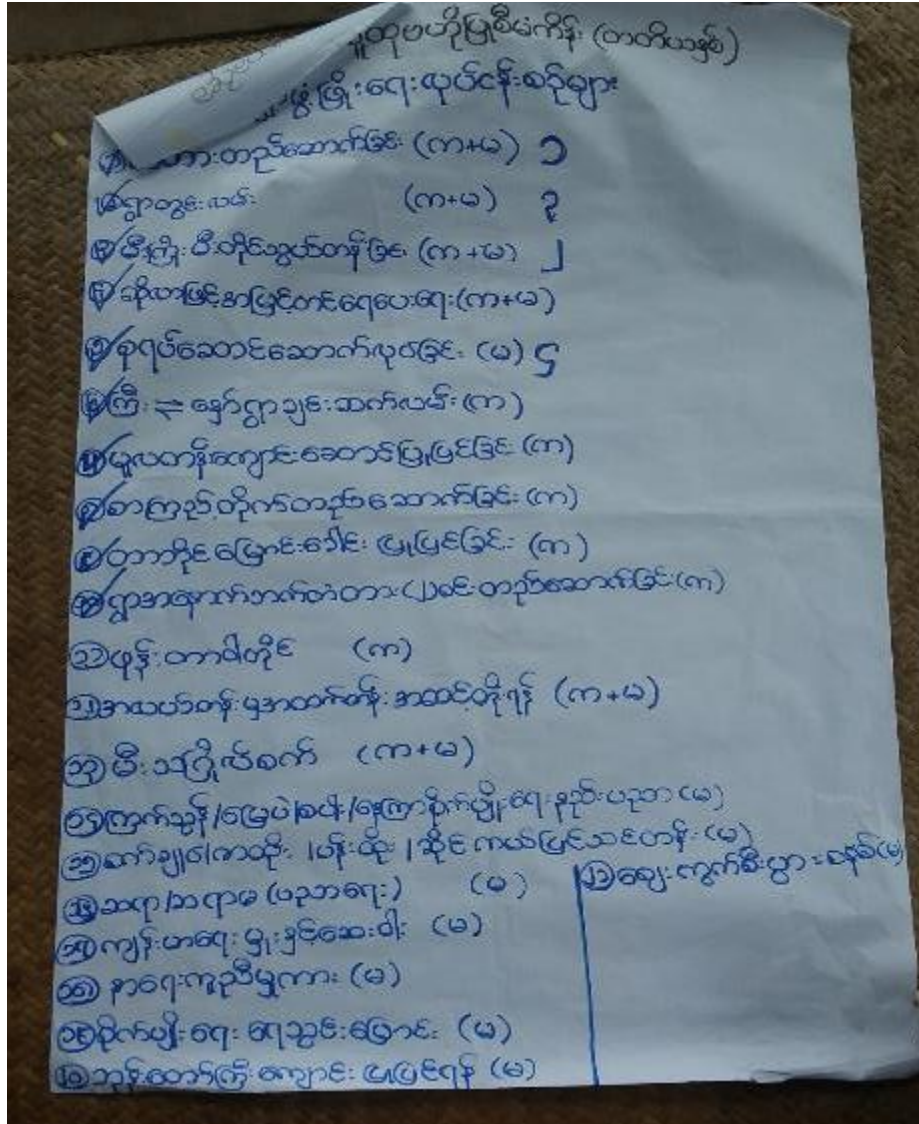 လူထုဗဟိုပြုစီမံကိန်း (တတိယနှစ်)
ဖွံ့ဖြိုးရေးလုပ်ငန်းစဉ်များ
တံတားတည်ဆောက်ခြင်း (က+မ) ၁
၂ ရွာတွင်းလမ်း (က+မ) ၃
၃ မီးကြိုးမီးတိုင်သွယ်တန်းခြင်း (က+မ) ၂
၄ ဆိုလာဖြင့်အမြင့်တင်ရေပေးရေး(က+မ)
၅ စုရပ်ဆောင်ဆောက်လုပ်ခြင်း (မ) ၄
၆ ကြီး ⇌ နော်ရွာချင်းဆက်လမ်း(က)
၇ မူလတန်းကျောင်းဆောင်ပြုပြင်ခြင်း (က)
၈ စာကြည့်တိုက်တည်ဆောက်ခြင်း (က)
၉ တာဘိုင်မြောင်းပေါင်း ပြုပြင်ခြင်း (က)
၁၀ ရွာအနောက်ဘက်တံတား(၂)စင်းတည်ဆောက်ခြင်း(က)
၁၁ ဖုန်းတာဝါတိုင် (က)
၁၂ အလယ်တန်းမှအထက်တန်းအဆင့်တိုးရန် (က+မ)
၁၃ မီးသဂြိုလ်စက် (က+မ)
၁၄ ကြက်သွန်/မြေပဲ/စပါး/နေကြာစိုက်ပျိုးရေးနည်းပညာ (မ)
၁၅ စက်ချုပ်/ဇာထိုး/ပန်းထိုး/ဆိုင်ကယ်ပြင်သင်တန်း(မ)
၁၆ ဆရာ/ဆရာမ (ပညာရေး) (မ)
၁၇ ကျန်းမာရေးမှူးနှင့်ဆေးဝါး (မ)
၁၈ နာရေးကူညီမှုကား (မ)
၁၉ စိုက်ပျိုးရေး ရေသွင်းမြောင်း (မ)
၂၀ ဘုန်းတော်ကြီးကျောင်း ပြုပြင်ရန် (မ)
၂၁ ဈေးကွက်စီးပွားစနစ်(မ)